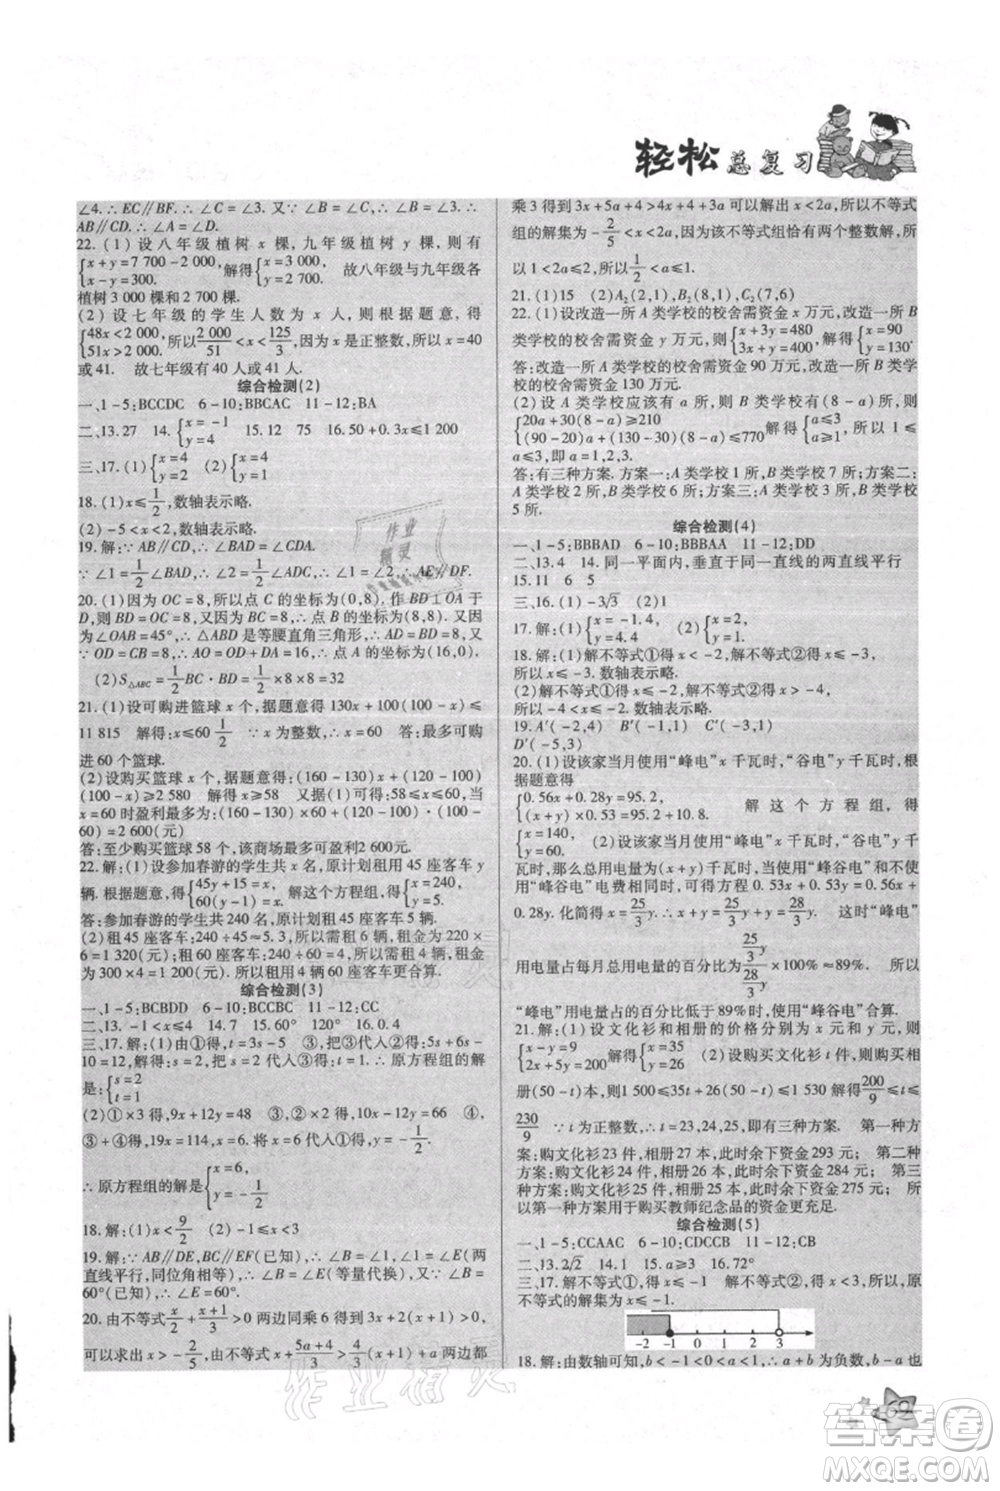 轻松总复习
∠4. ∴ EC∥BF. ∴ ∠C = ∠3. 又∵ ∠B = ∠C, ∴ ∠3 = ∠B. ∴
AB∥CD. ∴ ∠A = ∠D.
22. (1) 设八年级植树 x 棵, 九年级植树 y 棵, 则有
{x+y=7 700-2 000, x-y=300. 解得{x=3 000, y=2 700. 故八年级与九年级各
植树 3 000 棵和 2 700 棵.
(2) 设七年级的学生人数为 x 人, 则根据题意, 得
{48x<2 000, 51x>2 000, 所以 2 000/51 < x < 125/3. ∵ x 是正整数, 所以 x=40
或 41. 故七年级有 40 人或 41 人.
综合检测(2)
一、1-5:BCCDC 6-10:BBCAC 11-12:BA
二、13.27 14.{x=-1 y=4 15.12 75 16.50+0.3x≤1 200
三、17.(1){x=4 y=2 (2){x=4 y=2
18. (1)x≤1/2, 数轴表示略.
(2) -5<x<2, 数轴表示略.
19. 解:∵ AB∥CD, ∴ ∠BAD = ∠CDA.
∵ ∠1 = 1/2∠BAD, ∴ ∠2 = 1/2∠CDA, ∴ ∠1 = ∠2, ∴ AE∥DF.
20. (1)因为 OC=8, 所以点 C 的坐标为(0,8). 作 BD⊥OA 于
D, 则 BD=OC=8, 又 ∵ BC=8, ∴ 点 B 的坐标为(8,8). ∵
∠OAB=45°, ∴ △ABD 是等腰直角三角形, ∴ AD=BD=8, 又
∵ OD=CB=8, ∴ AO=OD+DA=16, ∴ 点 A 的坐标为(16,0).
(2)S△ABC=1/2BC·BD=1/2×8×8=32
21. (1)设可购进篮球 x 个, 根据题意, 得 130x+100(100-x)≤
11 815 解得:x≤60 1/2 ∵ x 为整数, ∴ x=60 答:最多可购
进 60 个篮球.
(2)设购买篮球 x 个, 据题意得:(160-130)x+(120-
100)(100-x)≥2 580 解得 x≥58 ∴ 58≤x≤60, 当 x=60
时盈利最多为(160-130)×60+(120-100)×(100-
60)=2 600(元)
答:至少购买篮球 58 个, 该商场最多可盈利 2 600 元.
22. 解:(1)设参加春游的学生共 x 名, 原计划租用 45 座客车 y
辆. 根据题意, 得{45y+15=x, 60(y-1)=x. 解这个方程组, 得{x=240, y=5.
答:参加春游的学生共 240 名, 原计划租 45 座客车 5 辆.
(2)租 45 座客车:240÷45≈5.3, 所以需租 6 辆, 租金为 220×
6=1 320(元); 租 60 座客车:240÷60=4, 所以需租 4 辆, 租金
为 300×4=1 200(元). 所以租用 4 辆 60 座客车更合算.
综合检测(3)
一、1-5:BCBDD 6-10:BCCBC 11-12:BA
二、13. -1<x≤4 14.7 15.60° 120° 16.0.4
三、17.解:(1)由①得:t=3s-5 ③ 把③代入②得:5s+6s-
10=12, 解得:s=2 把 s=2 代入③得:t=1. ∴ 原方程组的解
是:{s=2 t=1
(2)①×3, 得 9x+12y=48 ③, ②×2, 得 10x-12y=66
④. ③+④, 得 19x=114, x=6 代入①, 得 y=-1/2
∴ 原方程组的解是{x=6, y=-1/2
18. 解:(1)x<9/2 (2)-1≤x<3
19. 解:∵ AB∥DE, BC∥EF(已知), ∴ ∠B=∠1, ∠1=∠E(两
直线平行, 同位角相等), ∴ ∠B=∠E(等量代换), 又 ∵ ∠B=
60°(已知), ∴ ∠E=60°.
20. 由不等式 x/2+(x+1)/3>0 两边同乘 6 得到 3x+2(x+1)>0,
可以求出 x>-2/5, 由不等式 x+(5a+4)/3>4/3(x+1)+a 两边都
乘 3 得到 3x+5a+4>4x+4+3a 可以解出 x<2a, 所以不等式
组的解集为 -2/5<x<2a. 因为该不等式组恰有两个整数解, 所
以 1<2a≤2, 所以有 1/2<a≤1.
21. (1)15 (2)A₂(2,1), B₂(8,1), C₂(7,6)
22. (1)设改造一所 A 类学校的校舍需资金 x 万元, 改造一所
B 类学校的校舍需资金 y 万元, 则{x+3y=480 3x+y=400 解得{x=90 y=130.
答:改造一所 A 类学校的校舍需资金 90 万元, 改造一所 B
类学校的校舍需资金 130 万元.
(2)设 A 类学校应该有 a 所, 则 B 类学校有(8-a)所, 则
{20a+30(8-a)≥210 (90-20)a+(130-30)(8-a)≤770 解得{a≤3 a≥1, ∴ 1≤a≤
3, 即 a=1,2,3.
答:有三种方案. 方案一:A 类学校 1 所, B 类学校 7 所; 方案二:
A 类学校 2 所, B 类学校 6 所; 方案三:A 类学校 3 所, B 类学校
5 所.
综合检测(4)
一、1-5:BBBAD 6-10:BBBAA 11-12:DD
二、13.4 14.同一平面内, 垂直于同一直线的两直线平行
15.11 6 5
三、16.(1)-3√3 (2)1
17. 解:(1){x=-1.4, y=4.4 (2){x=2, y=1.
18. 解:(1)解不等式①得 x<-2, 解不等式②得 x≤-3,
所以 x≤-3. 数轴表示略.
(2)解不等式①得 x≤-2, 解不等式②得 x>-4,
所以 -4<x≤-2. 数轴表示略.
19. A′(-2,4) B′(-1,1) C′(-3,2)
D′(-5,3)
20. (1)设该家当月使用“峰电”x 千瓦时, “谷电”y 千瓦时.
根据题意得
{0.56x+0.28y=95.2, (x+y)×0.53=95.2+10.8. 解这个方程组, 得
{x=140, y=60. (2)设该家当月使用“峰电”x 千瓦时, “谷电”y 千
瓦时, 那么总用电量为(x+y)千瓦时, 当使用“峰谷电”电费与
不使用“峰谷电”电费相同时, 可得 0.53(x+y)=0.56x+
0.28y. 化简得 x=25/3y. x+y=25/3y+y=28/3y 这时“峰电”
用电量占每月总用电量的百分比为(25/3y)/(28/3y)×100%≈89%. 所以
“峰电”用电量占的百分比低于 89% 时, 使用“峰谷电”合算.
21. 解:(1)设文化衫和相册的价格分别为 x 元和 y 元, 则
{x-y=9 2x+5y=200 解得{x=35 y=26 (2)设购买文化衫 t 件, 则购买相
册(50-t)本, 则 1 500≤35t+26(50-t)≤1 530 解得 200/9≤t≤
230/9 ∵ t 为正整数, ∴ t=23,24,25, 即有三种方案. 第一种方
案:购文化衫 23 件, 相册 27 本, 此时余下资金 293 元; 第二种
方案:购文化衫 24 件, 相册 26 本, 此时余下资金 284 元; 第三种
方案:购文化衫 25 件, 相册 25 本, 此时余下资金 275 元; 所
以第一种方案用于购买教师纪念品的资金更充足.
综合检测(5)
一、1-5:CCAAC 6-10:CDCCB 11-12:CB
二、13.2√2 14.1 15.± 16.72°
三、17.解不等式①, 得 x≤-1, 解不等式②, 得 x<3, 所以, 原
不等式的解集为 x≤-1.
-2 -1 0 1 2 3
18. 解:由数轴可知, b<-1<0<a<1, ∴ a+b 为负数, a-b 也
69
作业精灵
答案圈
MXQE.COM